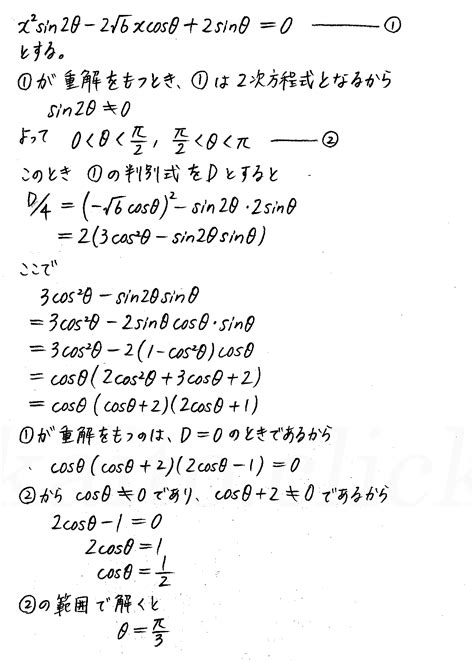 x²sin2θ − 2√6xcosθ + 2sinθ = 0 ――― ①
とする。
①が重解をもつとき、①は2次方程式となるから
sin2θ ≠ 0
よって 0 < θ < π/2, π/2 < θ < π ――― ②
このとき ①の判別式をDとすると
D/4 = (−√6cosθ)² − sin2θ・2sinθ
= 2(3cos²θ − sin2θsinθ)
ここで
3cos²θ − sin2θsinθ
= 3cos²θ − 2sinθcosθ・sinθ
= 3cos²θ − 2(1−cos²θ)cosθ
= cosθ(2cos²θ + 3cosθ + 2)
= cosθ(cosθ+2)(2cosθ+1)
①が重解をもつのは、D=0のときであるから
cosθ(cosθ+2)(2cosθ−1) = 0
②から cosθ ≠ 0 であり、cosθ+2 ≠ 0 であるから
2cosθ − 1 = 0
2cosθ = 1
cosθ = 1/2
②の範囲で解くと
θ = π/3